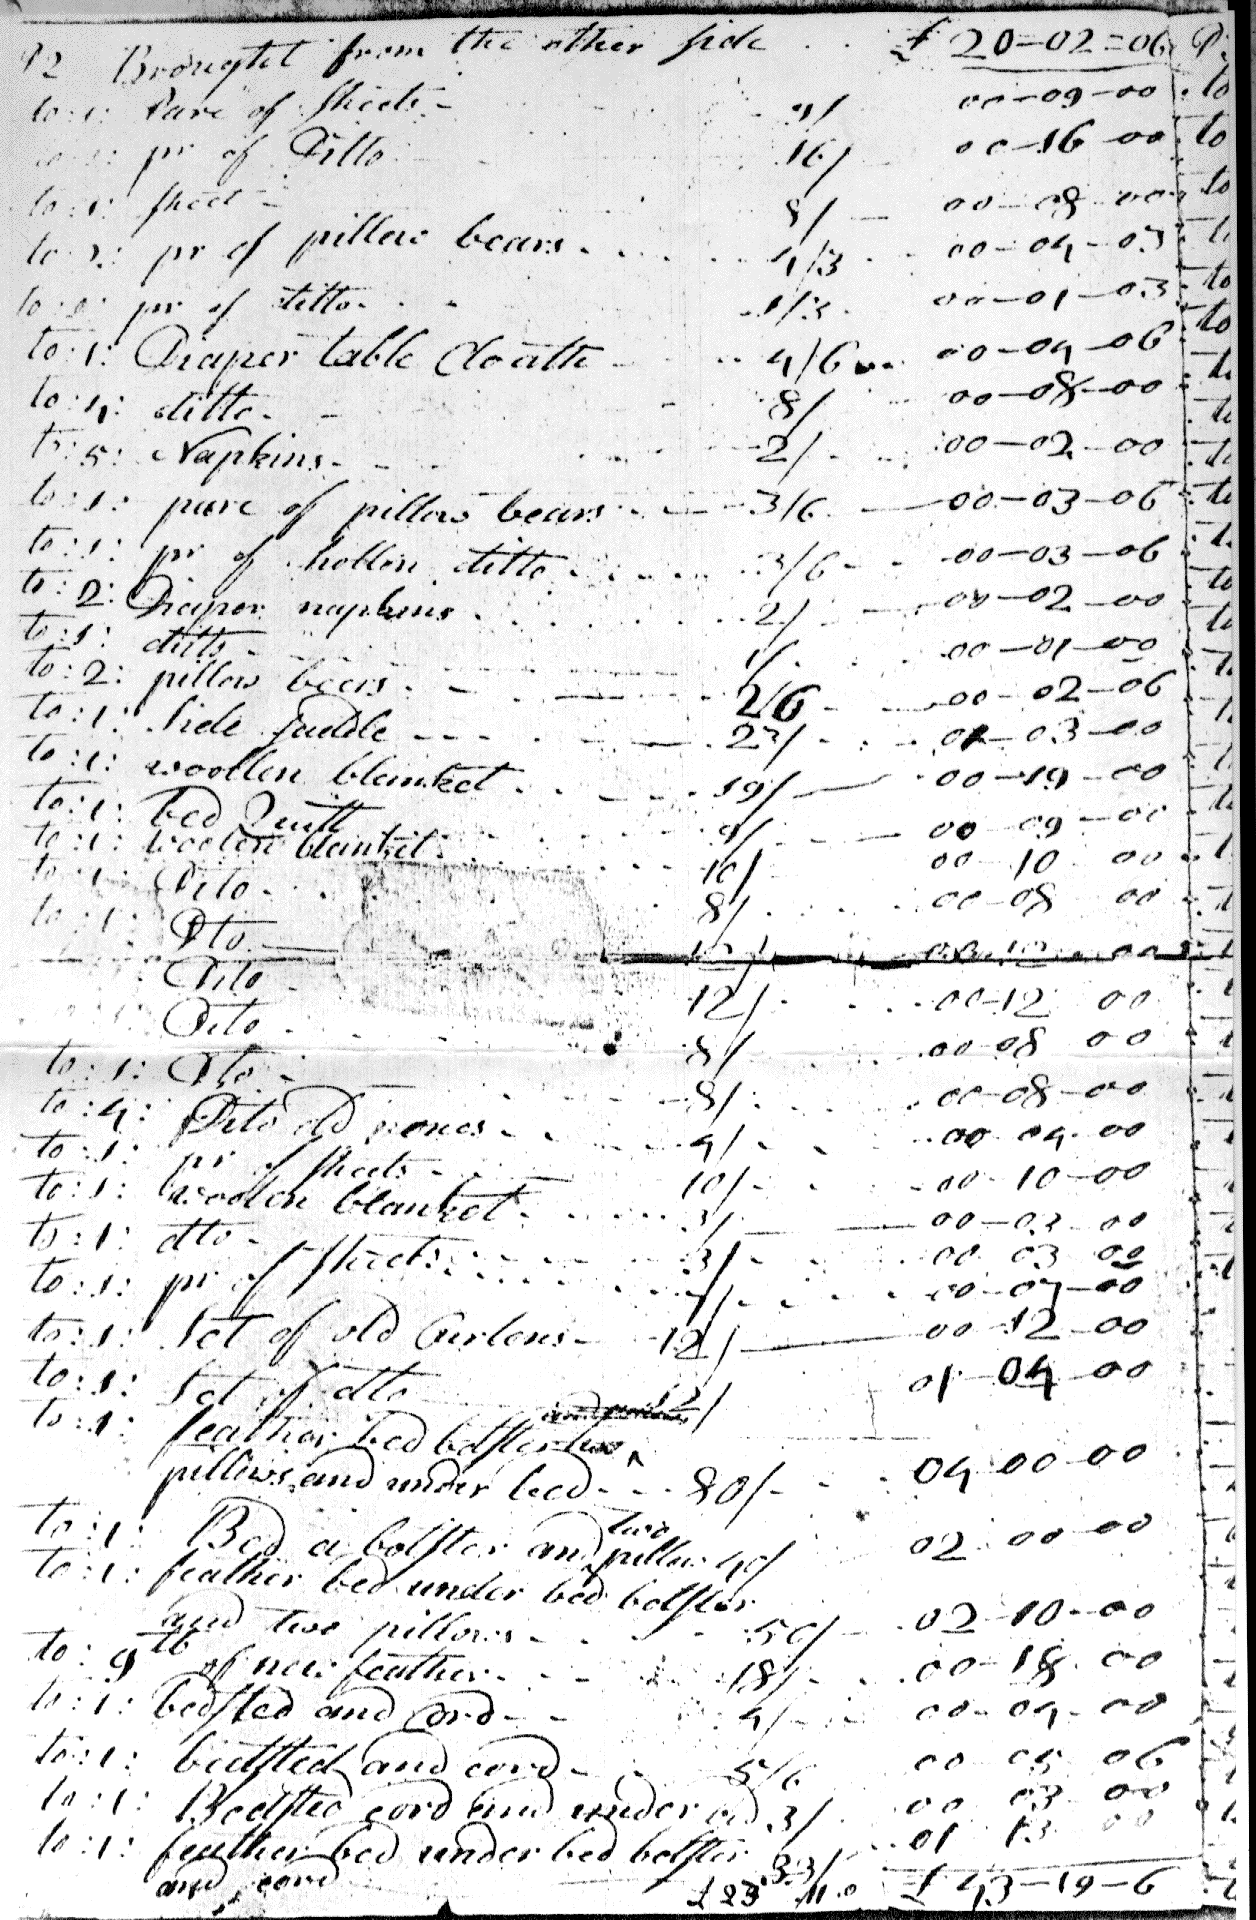 P2 Brought from the other side . . £ 20=02=06
to:1: Pare of sheets - 9/ 00-09-00
pr of Ditto 16/ 00-16-00
to:1: sheet - 8/ - 00-08-00
to: pr of pillow bears . . . . 4/3 . . 00-04-03
pr of ditto . . . 1/3 . 00-01-03
to:1: Diaper table Cloath - . . 4/6 . . 00-04-06
to:4: ditto - - 8/ 00-08-00
to:5: Napkins - - - 2/ . . 00-02-00
to:1: pare of pillow bears . . - - 3/6 - 00-03-06
to:1: pr of hollon ditto . . . . 3/6 - - 00-03-06
to:2: Diaper napkins . . . . 2/ . . 00-02-00
to:1: ditto - 1/ . . . 00-01-00
to:2: pillow beers . - . - 2/6 - 00-02-06
to:1: Side Saddle - - - - 23/ - . . 01-03-00
to:1: woollen blanket . . - - 19/ - 00-19-00
to:1: bed Quilt . . . 9/ - . - 00 09-00
to:1: woolen blanket . . . . 10/ 00 10 00
to:1: Dito - . . . 8/ . . . 00-08 00
to:1: Dto 12/ 00-12 00
Dito - 12/ . . . 00-12 00
Dito - . . 8/ . . 00-08 00
to:1: Dto - . . . 8/ . . . 00-08-00
to:4: Dito old wones - . . 4/ . . 00 04-00
to:1: pr of sheets - . . 10/ - . . 00-10-00
to:1: woolen blanket . . . . 3/ - 00-03-00
to:1: dto - 3/ - . . 00 03 00
to:1: pr of sheets . . . . . 7/ - . . 00-07-00
to:1: Set of old Curtens - 12/ - 00 12-00
to:1: Set of dto 12/ 01 04 00
to:1: feather bed bolster two
pillows and under bed - - - 80/ - . . 04 00-00
to:1: Bed a bolster and two pillow 40/ 02 00-00
to:1: feather bed under bed bolster
and two pillows - . . 50/ - 02-10-00
to: 9 lb of new feather - - - 18/ - . . 00-18-00
to:1: bedsted and Cord - - 4/ - . . 00-04-00
to:1: bedsted and cord - . 5/6 00 05 06
to:1: Bedsted cord and under bed 3/ . 00 03 00
to:1: feather bed under bed bolster 33/ . . 01 13 00
and cord £23 11.0 £ 43-19-6